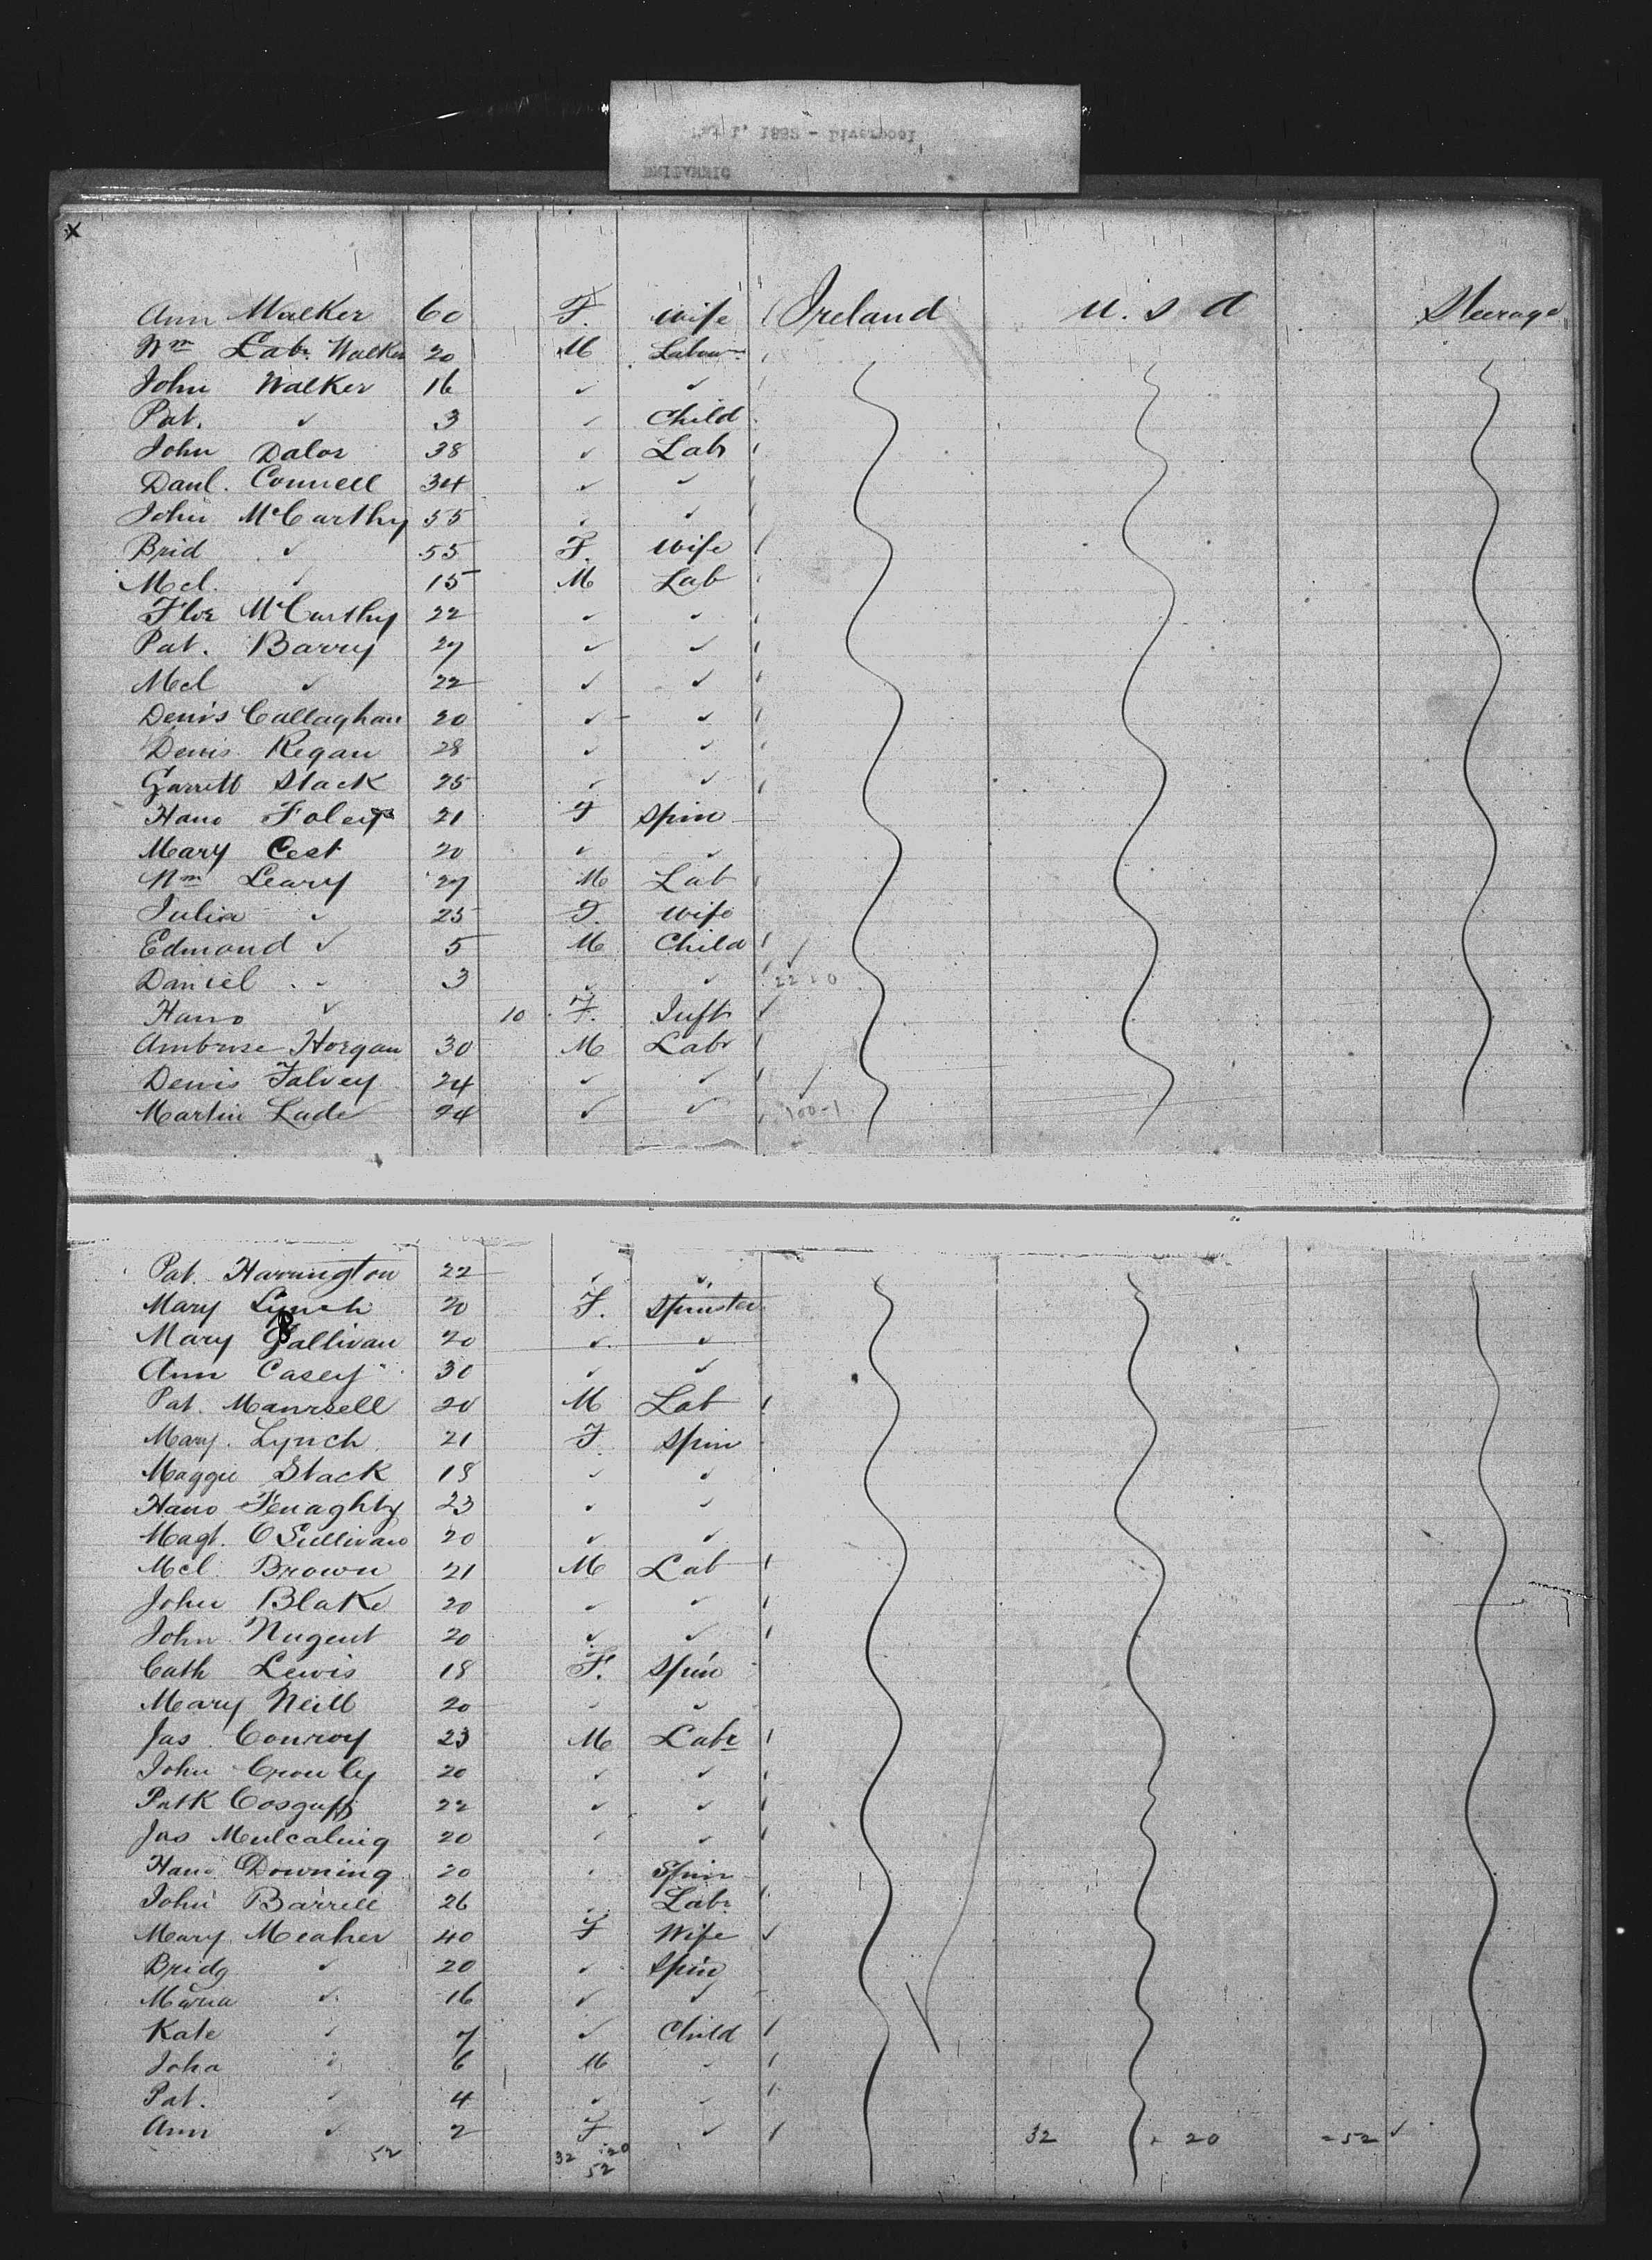 1882 - Liverpool
BRITANNIC
x
Ann Walker 60 F. wife Ireland U. S A Steerage
Wm Labr Walker 20 M Labour
John Walker 16 ✓ ✓
Pat. ✓ 3 ✓ Child
John Dalor 38 ✓ Labr
Danl. Connell 34 ✓ ✓
John McCarthy 55 ✓ ✓
Brid ✓ 55 F. wife
Mcl. ✓ 15 M Lab
Flor McCarthy 22 ✓ ✓
Pat. Barry 27 ✓ ✓
Mcl ✓ 22 ✓ ✓
Denis Callaghan 20 ✓ ✓
Denis Regan 28 ✓ ✓
Garrett Stack 25 ✓ ✓
Hano Foley 21 F Spin
Mary Cest 20 ✓ ✓
Wm Leary 27 M Lab
Julia ✓ 25 F. wife
Edmond ✓ 5 M Child
Daniel ✓ 3 ✓ ✓
Hano ✓ 10 F. Inft
Ambrose Horgan 30 M Labr
Denis Falvey 24 ✓ ✓
Martin Lade 24 ✓ ✓ 100-1
Pat. Harrington 22 ✓ ✓
Mary Lynch 20 F. Spinster
Mary Sallivan 20 ✓ ✓
Ann Casey 30 ✓ ✓
Pat. Manrsell 20 M Lab
Mary. Lynch 21 F. Spin
Maggie Stack 18 ✓ ✓
Hano Fenaghty 23 ✓ ✓
Magt. O Sullivan 20 ✓ ✓
Mcl. Brown 21 M Lab
John Blake 20 ✓ ✓
John Nugent 20 ✓ ✓
Cath Lewis 18 F. Spin
Mary Neill 20 ✓ ✓
Jas Conroy 23 M Labr
John Crowley 20 ✓ ✓
Patk Cosguff 22 ✓ ✓
Jas Mulcahig 20 ✓ ✓
Hano Downing 20 ✓ Spin
John Barrell 26 ✓ Labr
Mary Meaher 40 F Wife
Bridg ✓ 20 ✓ Spin
Maria ✓ 16 ✓ ✓
Kate ✓ 7 ✓ Child
John ✓ 6 M ✓
Pat. ✓ 4 ✓ ✓
Ann ✓ 2 F ✓ 32 + 20 = 52 ✓
52 32 20
52